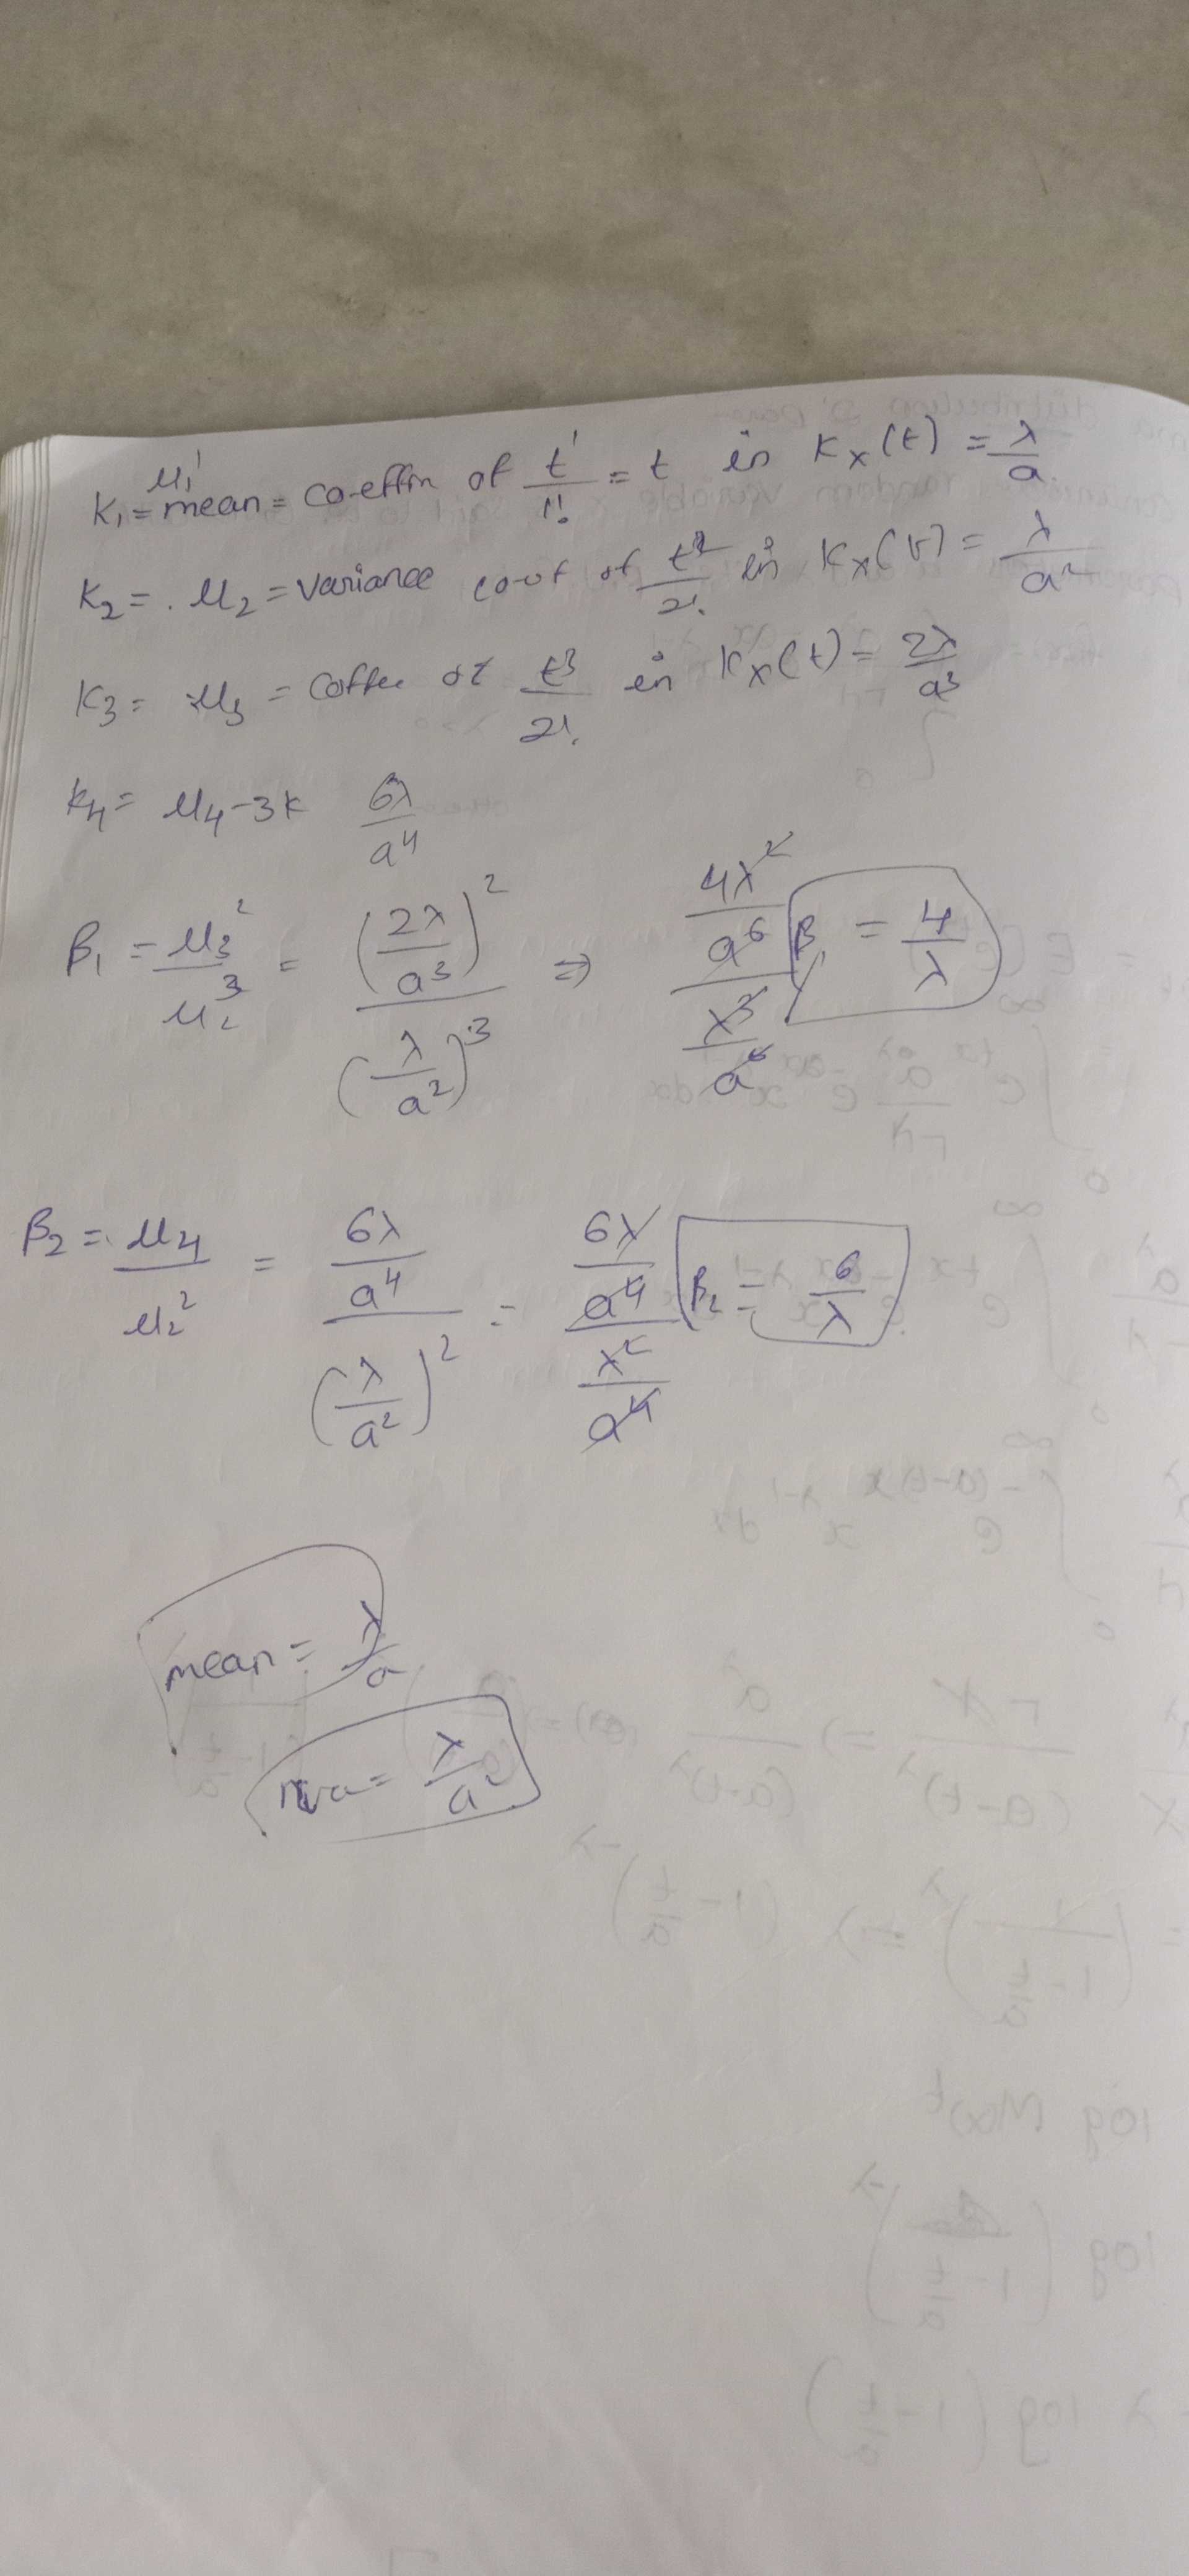 K₁ = μ₁' mean = co-effin of t¹/1! = t in Kx(t) = λ/a
K₂ = . μ₂ = variance co-of of t²/2! in Kx(t) = λ/a²
K₃ = μ₃ = coffee of t³/2! in Kx(t) = 2λ/a³
K₄ = μ₄ - 3K 6λ/a⁴
β₁ = μ₃²/μ₂³ = (2λ/a³)²/(λ/a²)³ ⇒ (4λ²/a⁶)/(λ³/a⁶) β₁ = 4/λ
β₂ = μ₄/μ₂² = (6λ/a⁴)/(λ/a²)² = (6λ/a⁴)/(λ²/a⁴) β₂ = 6/λ
mean = λ/a
= λ/a²